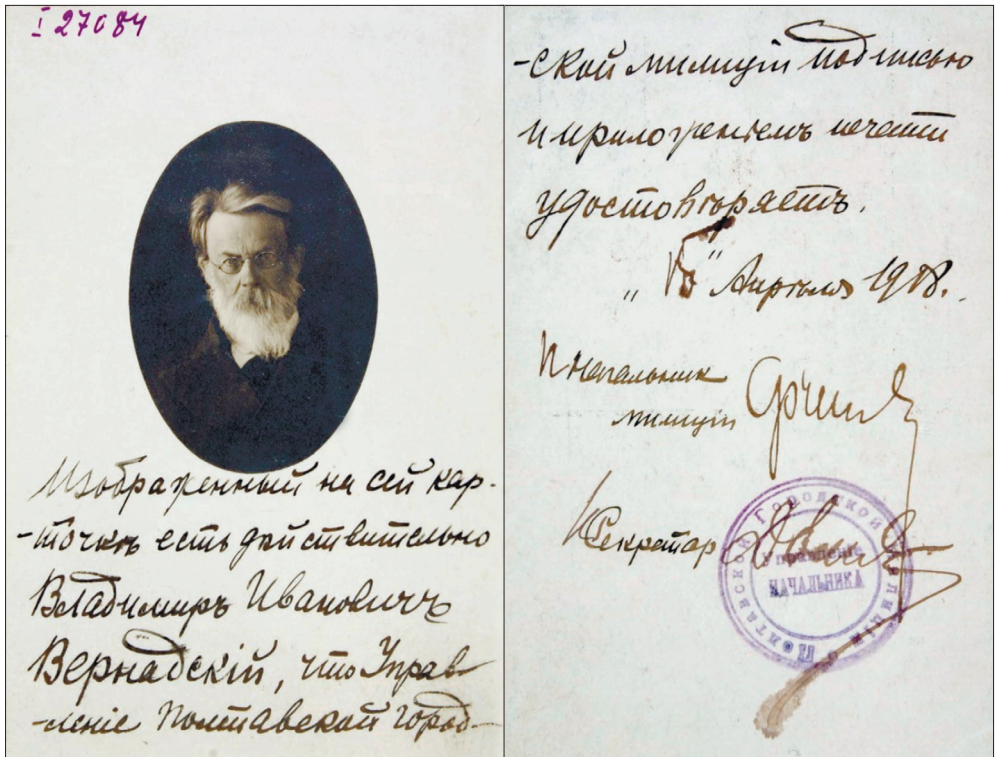 I 27084
Изображенный на сей кар-
-точкѣ есть дѣйствительно
Владимиръ Ивановичъ
Вернадскій, что Управ-
-леніе Полтавской город-
-ской милиціи подписью
и приложеніемъ печати
удостовѣряетъ.
" " Апрѣля 1918.
Начальник
милиціи
Секретар
Полтавской Городской Милиціи
Управленіе
НАЧАЛЬНИКА